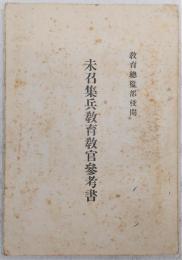 教育總監部校閲
未召集兵教育教官參考書